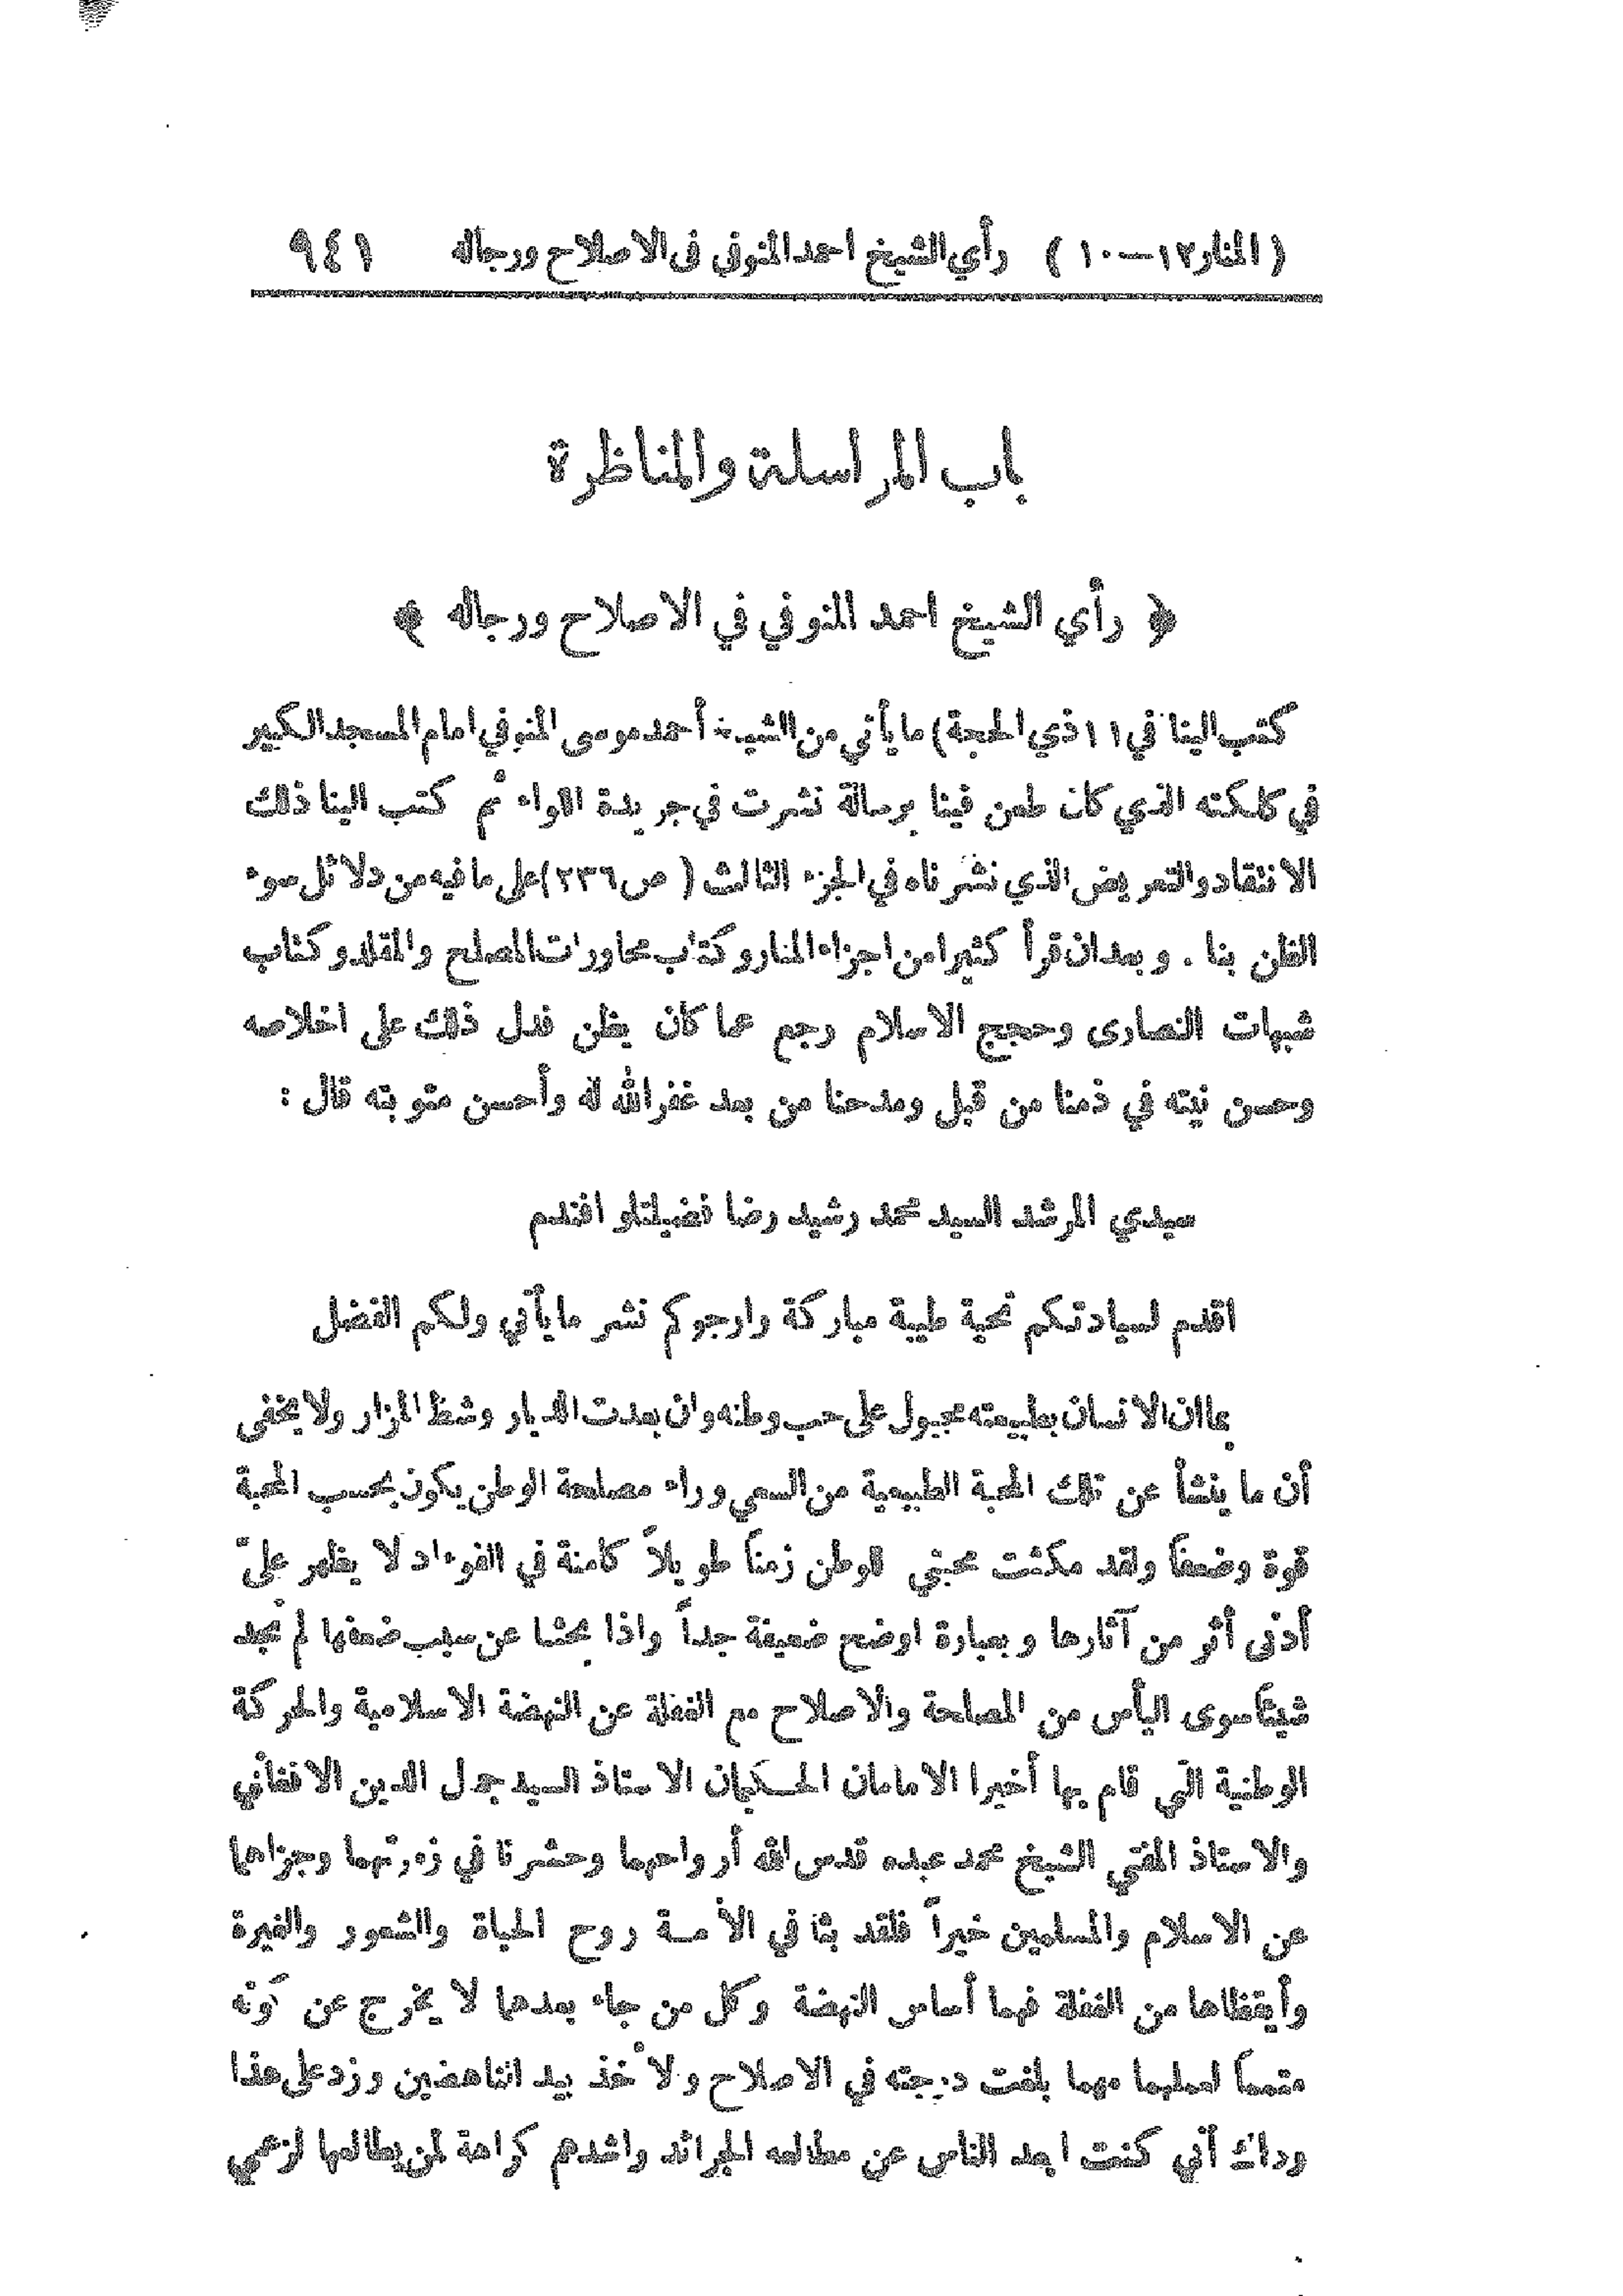 ( المنار١٢—١٠ ) رأي الشيخ احمد المنوفي فى الاصلاح ورجاله ٩٤١
باب المراسلة والمناظرة
﴿ رأي الشيخ احمد المنوفي في الاصلاح ورجاله ﴾
كتب الينا في ١١ ذي الحجة) ما يأتي من الشيخ أحمد موسى المنوفي امام المسجد الكبير
في كلكته الذي كان طعن فينا برسالة نشرت في جريدة اللواء ثم كتب الينا ذلك
الانتقاد والتعريض الذي نشرناه في الجزء الثالث ( ص٢٣٦) على ما فيه من دلائل سوء
الظن بنا . وبعد ان قرأ كثيرا من اجزاء المنار وكتاب محاورات المصلح والمقلد وكتاب
شبهات النصارى وحجج الاسلام رجع عما كان يظن فدل ذلك على اخلاصه
وحسن نيته في ذمنا من قبل ومدحنا من بعد غفر الله له وأحسن مثوبته قال :
سيدي المرشد السيد محمد رشيد رضا فضيلتلو افندم
اقدم لسيادتكم تحية طيبة مباركة وارجوكم نشر ما يأتي ولكم الفضل
بما ان الانسان بطبيعته مجبول على حب وطنه وان بعدت الديار وشط المزار ولا يخفى
أن ما ينشأ عن تلك المحبة الطبيعية من السعي وراء مصلحة الوطن يكون بحسب المحبة
قوة وضعفاً ولقد مكثت محبتي للوطن زمناً طويلاً كامنة في الفوءاد لا يظهر عليّ
أدنى أثر من آثارها وبعبارة اوضح ضعيفة جداً واذا بحثنا عن سبب ضعفها لم نجد
شيئاً سوى اليأس من المصلحة والاصلاح مع الغفلة عن النهضة الاسلامية والحركة
الوطنية التي قام بها أخيرا الامامان الحكيمان الاستاذ السيد جمال الدين الافغاني
والاستاذ المفتي الشيخ محمد عبده قدس الله أرواحهما وحشرنا في زمرتهما وجزاهما
عن الاسلام والمسلمين خيراً فلقد بثا في الأمة روح الحياة والشعور والغيرة
وأيقظاها من الغفلة فهما أساس النهضة وكل من جاء بعدهما لا يخرج عن كونه
متمماً لعملهما مهما بلغت درجته في الاصلاح والأخذ بيد الناهضين وزد على هذا
وذاك أني كنت ابعد الناس عن مطالعه الجرائد واشدهم كراهة لمن يطالعها لزعمي